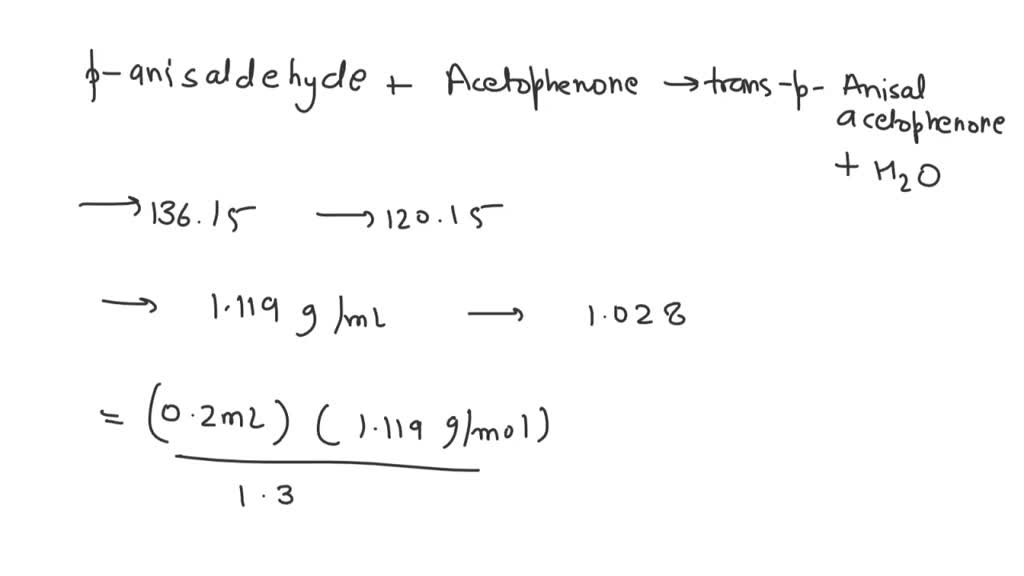 p-anisaldehyde + Acetophenone → trans-p- Anisal
acetophenone
+ H₂O
→ 136.15 → 120.15
→ 1.119 g/mL → 1.028
= (0.2mL) (1.119 g/mol)
1.3